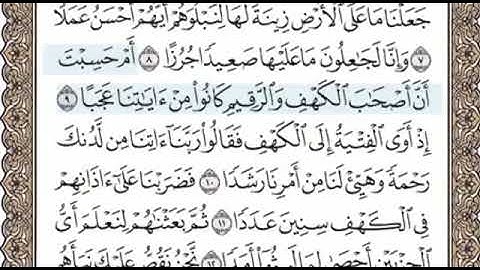 جَعَلْنَا مَا عَلَى ٱلْأَرْضِ زِينَةً لَّهَا لِنَبْلُوَهُمْ أَيُّهُمْ أَحْسَنُ عَمَلًا
٧ وَإِنَّا لَجَٰعِلُونَ مَا عَلَيْهَا صَعِيدًا جُرُزًا ٨ أَمْ حَسِبْتَ
أَنَّ أَصْحَٰبَ ٱلْكَهْفِ وَٱلرَّقِيمِ كَانُوا۟ مِنْ ءَايَٰتِنَا عَجَبًا ٩
إِذْ أَوَى ٱلْفِتْيَةُ إِلَى ٱلْكَهْفِ فَقَالُوا۟ رَبَّنَآ ءَاتِنَا مِن لَّدُنكَ
رَحْمَةً وَهَيِّئْ لَنَا مِنْ أَمْرِنَا رَشَدًا ١٠ فَضَرَبْنَا عَلَىٰٓ ءَاذَانِهِمْ
فِى ٱلْكَهْفِ سِنِينَ عَدَدًا ١١ ثُمَّ بَعَثْنَٰهُمْ لِنَعْلَمَ أَىُّ
ٱلْحِزْبَيْنِ أَحْصَىٰ لِمَا لَبِثُوٓا۟ أَمَدًا ١٢ نَّحْنُ نَقُصُّ عَلَيْكَ نَبَأَهُم